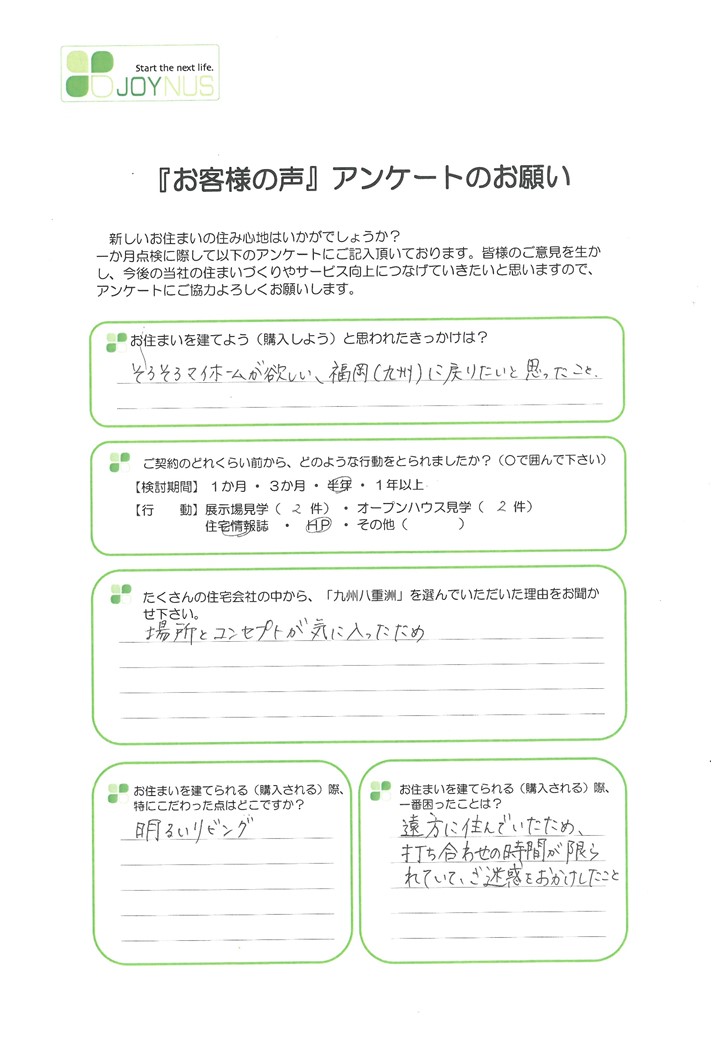 Start the next life.
JOYNUS
『お客様の声』アンケートのお願い
新しいお住まいの住み心地はいかがでしょうか？
一か月点検に際して以下のアンケートにご記入頂いております。皆様のご意見を生か
し、今後の当社の住まいづくりやサービス向上につなげていきたいと思いますので、
アンケートにご協力よろしくお願いします。
お住まいを建てよう（購入しよう）と思われたきっかけは？
そろそろマイホームが欲しい、福岡(九州)に戻りたいと思ったこと.
ご契約のどれくらい前から、どのような行動をとられましたか？（〇で囲んで下さい）
【検討期間】 １か月 ・ ３か月 ・ 半年 ・ １年以上
【行　動】 展示場見学（ 2 件） ・ オープンハウス見学（ 2 件）
住宅情報誌 ・ HP ・ その他（　　　）
たくさんの住宅会社の中から、「九州八重洲」を選んでいただいた理由をお聞か
せ下さい。
場所とコンセプトが気に入ったため
お住まいを建てられる（購入される）際、
特にこだわった点はどこですか？
明るいリビング
お住まいを建てられる（購入される）際、
一番困ったことは？
遠方に住んでいたため、
打ち合わせの時間が限ら
れていて、ご迷惑をおかけしたこと